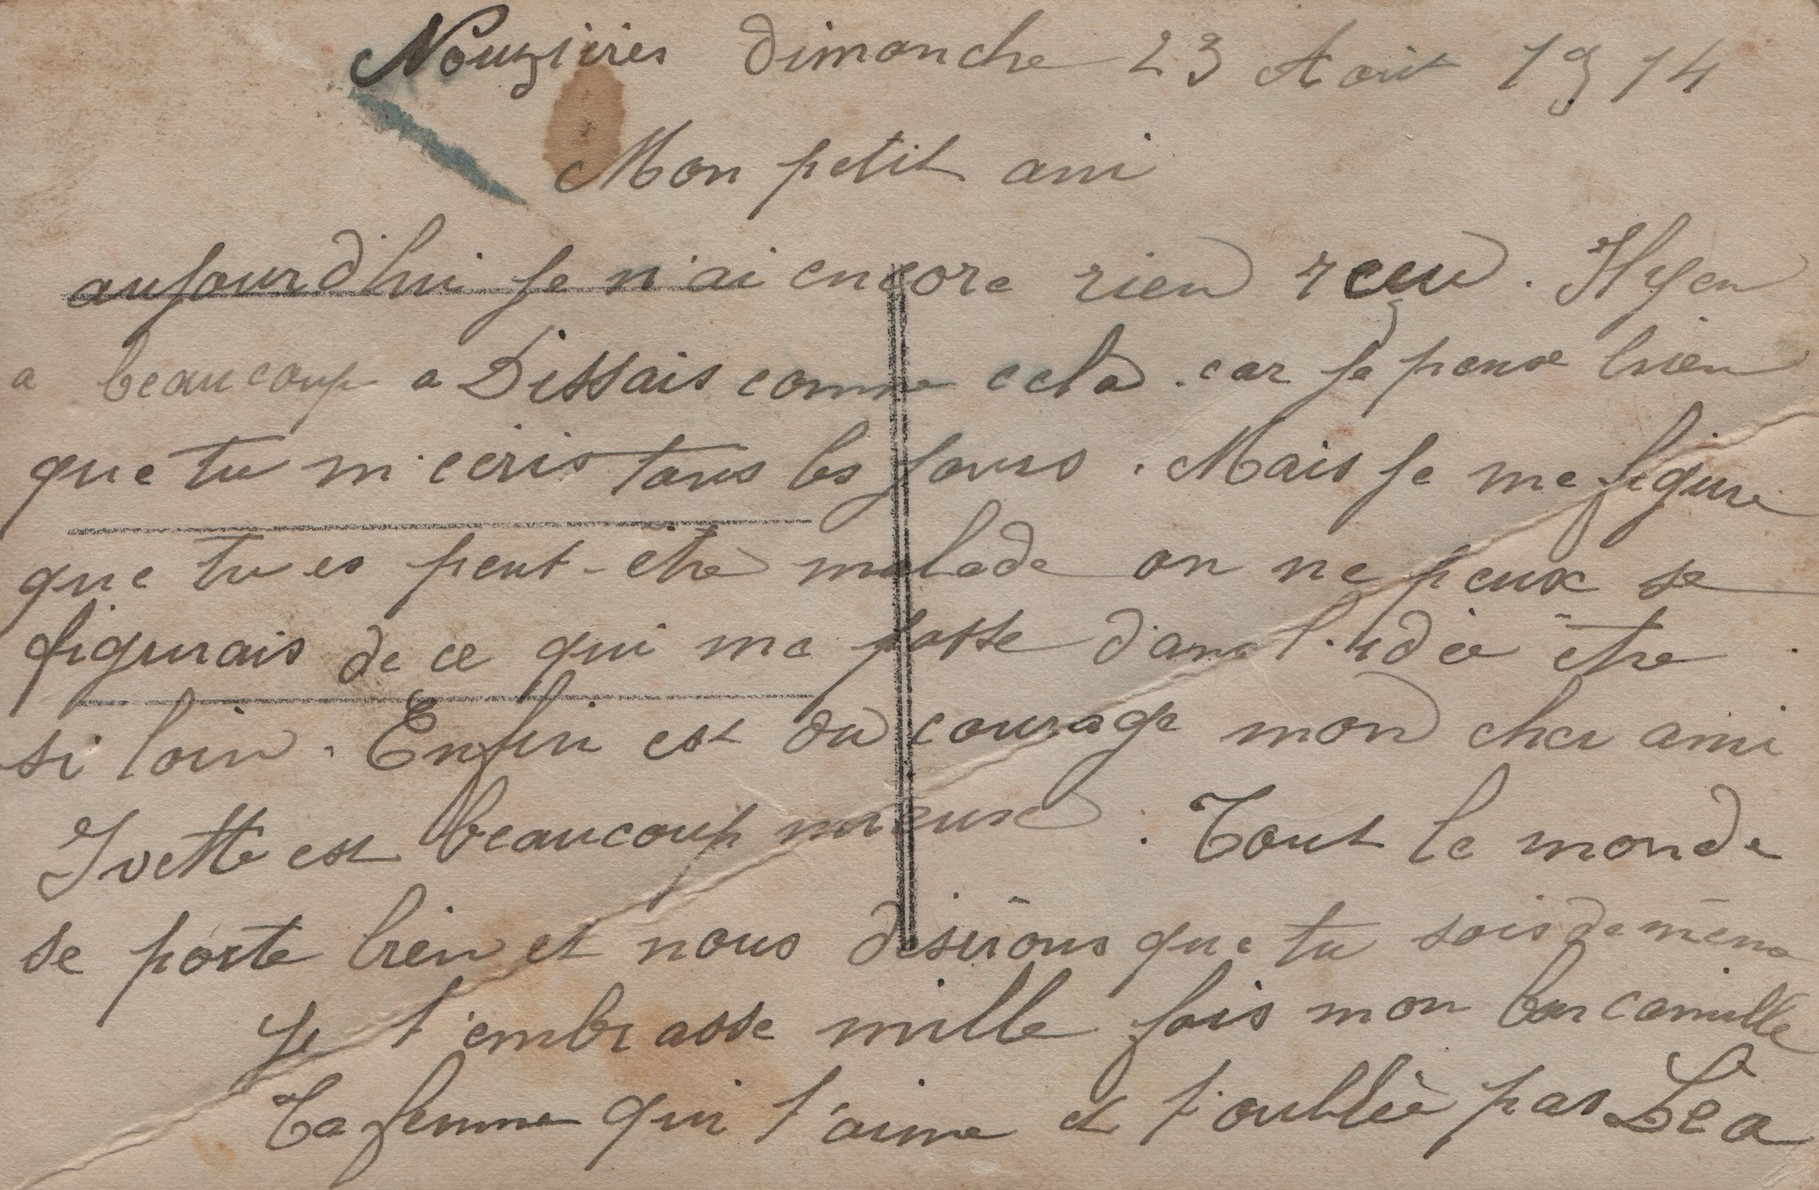 Nouzières dimanche 23 Aout 1914
Mon petit ami
aujourd'hui je n'ai encore rien reçu. Il y en
a beaucoup a Dissais comme cela. car je pense bien
que tu m'ecris tous les jours. Mais je me figure
que tu es peut-être malade on ne peux se
figurais de ce qui me passe dans l'idèe être
si loin. Enfin est du courage mon cher ami
Ivette est beaucoup mieux. Tout le monde
se porte bien et nous desirons que tu sois de même
Je t'embrasse mille fois mon bon Camille
Ta femme qui t'aime et t'oublie pas Léa